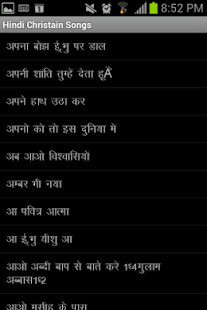 8:52 PM
Hindi Christain Songs
अपना बोझ ईृभु पर डाल
अपनी शांति तुम्हें देता हूÄ
अपने हाथ उठा कर
अपनो को तो इस दुनिया मे
अब आओ विश्वासियो
अम्बर भी नया
आ पवित्र आत्मा
आ ईृभु यीशु आ
आओ अब्दी बाप से बाते करे १५४गुलाम
अब्बास१५२
आओ मसीह के पास